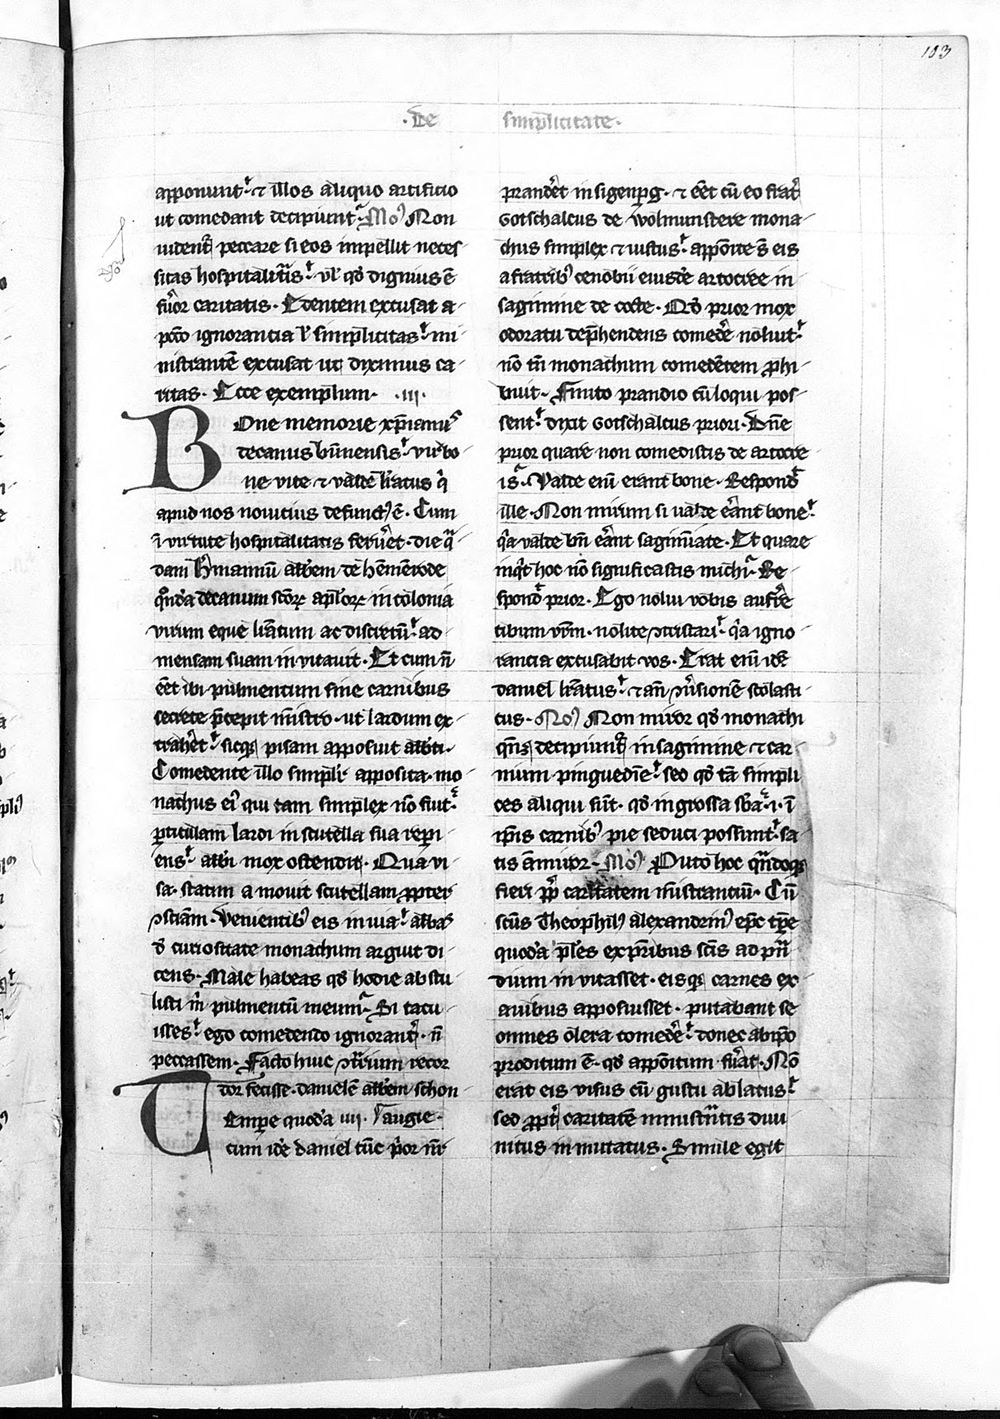 103
·De simplicitate·
apponunt· ⁊ illos aliquo artificio
ut comedant decipiunt· Mo᷒ Non
uident᷑ peccare si eos impellit neces
sitas hospitalit̃tis· ul̾ qd̾ dignius ē
feruor caritatis· Edentem excusat a
pd̾co ignorancia ul̾ simplicitas· mi
nistrantē excusat ut diximus ca
ritas· Ecce exemplum· ·iii·
Bone memorie xp̃ianus
decanus bunnensis· vir bo
ne vite ⁊ valde l̾ratus q̾
apud nos nouitius defunct᷒ ē· Cum
ī virtute hospitalitatis feru̾et· die q̾
dam h̾mannū abb̾em de hēmērode
quōda decanum sc̃orꝝ ap̃lorꝝ in colonia
virum eque l̾ratum ac discretū· ad
mensam suam in vitauit· Et cum ñ
eēt ibi pulmentum sine carnibus
secrete p̃cepit mīstro· ut lardum ex
trah̾et· sicqꝫ pisam apposuit abb̾ti·
Comedente illo simplr̾ apposita· mo
nachus ei᷒ qui tam simplex nō fuit·
ꝑticulam lardi in scutella sua repi
ens· abb̾i mox ostendit· Qua vi
sa· statim a mouit scutellam ꝓpter
ꝯsciam· Reuertentib᷒ eis in uia· abb̾as
d̾ curiositate monachum arguit di
cens· Male habeas qd̾ hodie ab stu
listi m̾ pulmentū meum· Si tacu
isses· ego comedendo ignorant̾· ñ
peccassem· Facto huic ꝯtr̾rium recor
dor fecisse· danielē abb̾em schon
Tempore quoda iiii· laugie·
cum id̾e daniel tūc p̾or nr̃i
prand̾et in sigenƥg· ⁊ eēt cū eo frat̾
Gotschalcus de wolmunstere mona
chus simplex ⁊ iustus· apposite s̃ eis
a fratrib᷒ cenobii eiusd̾e artocree in
sagimine de cocte· Qd̾ prior mox
odoratu dep̃hendens comed̾e noluit·
nō tn̄ monachum comed̾etem ꝓhi
buit· Finito prandio cū loqui pos
sent· dixit Gotschalcus priori· Dñe
prior quare non comedistis de artocre
is· Valde eni̅ erant bone· Respond̾
ille· Non mirum si valde erant bone·
q̾a valde bn̄ erant saginiate· Et quare
inq̾t hoc nō significastis michi· Re
spond̾ prior· Ego nolui vobis aufer̾e
cibum vr̃m· nolite ꝯtristari· q̾a igno
rancia excusabit vos· Erat eni̅ id̾e
daniel l̾ratus· ⁊ an̄ ꝯu̾sionē scolasti
cus· No᷒ Non miror qd̾ monachi
qn̄qꝫ decipiunt᷑ in sagimine ⁊ car
nium pinguedīe· sed qd̾ tā simpli
ces aliqui sūt· qd̾ in grossa sb̾a· i· ī
ip̄is carnib᷒ pie seduci possunt· sa
tis āmiror· Mo᷒ Puto hoc qn̄doqꝫ
fieri pp̾ caritatem mīstrantiū· Cū
sc̃us Theophil᷒ alexandrin᷒ ep̃c tp̃e
quoda p̃les ex p̃ribus sc̃is ad pn̄
dium in vitasset· eisqꝫ carnes ex
auibus apposuisset· putabant se
omnes olera comed̾e· donec ab ip̄o
proditum ē· qd̾ appositum fu̾at· Nō
erat eis visus cū gustu ablatus·
sed ꝓpt̾ caritatē ministrantis diui
nitus in mutatus· Simile egit